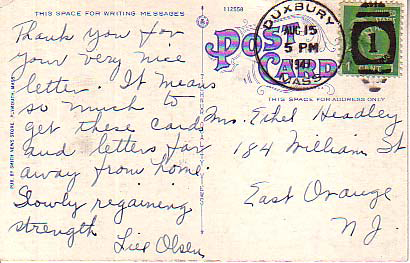 THIS SPACE FOR WRITING MESSAGES
112558
Thank you for
your very nice
letter. It means
so much to
get these cards
and letters far
away from home
Slowly regaining
strength
Olsen
POST
CARD
DUXBURY
AUG 15
5 PM
MASS
1
THIS SPACE FOR ADDRESS ONLY
Mrs. Ethel Headley
184 William St
East Orange
N.J.